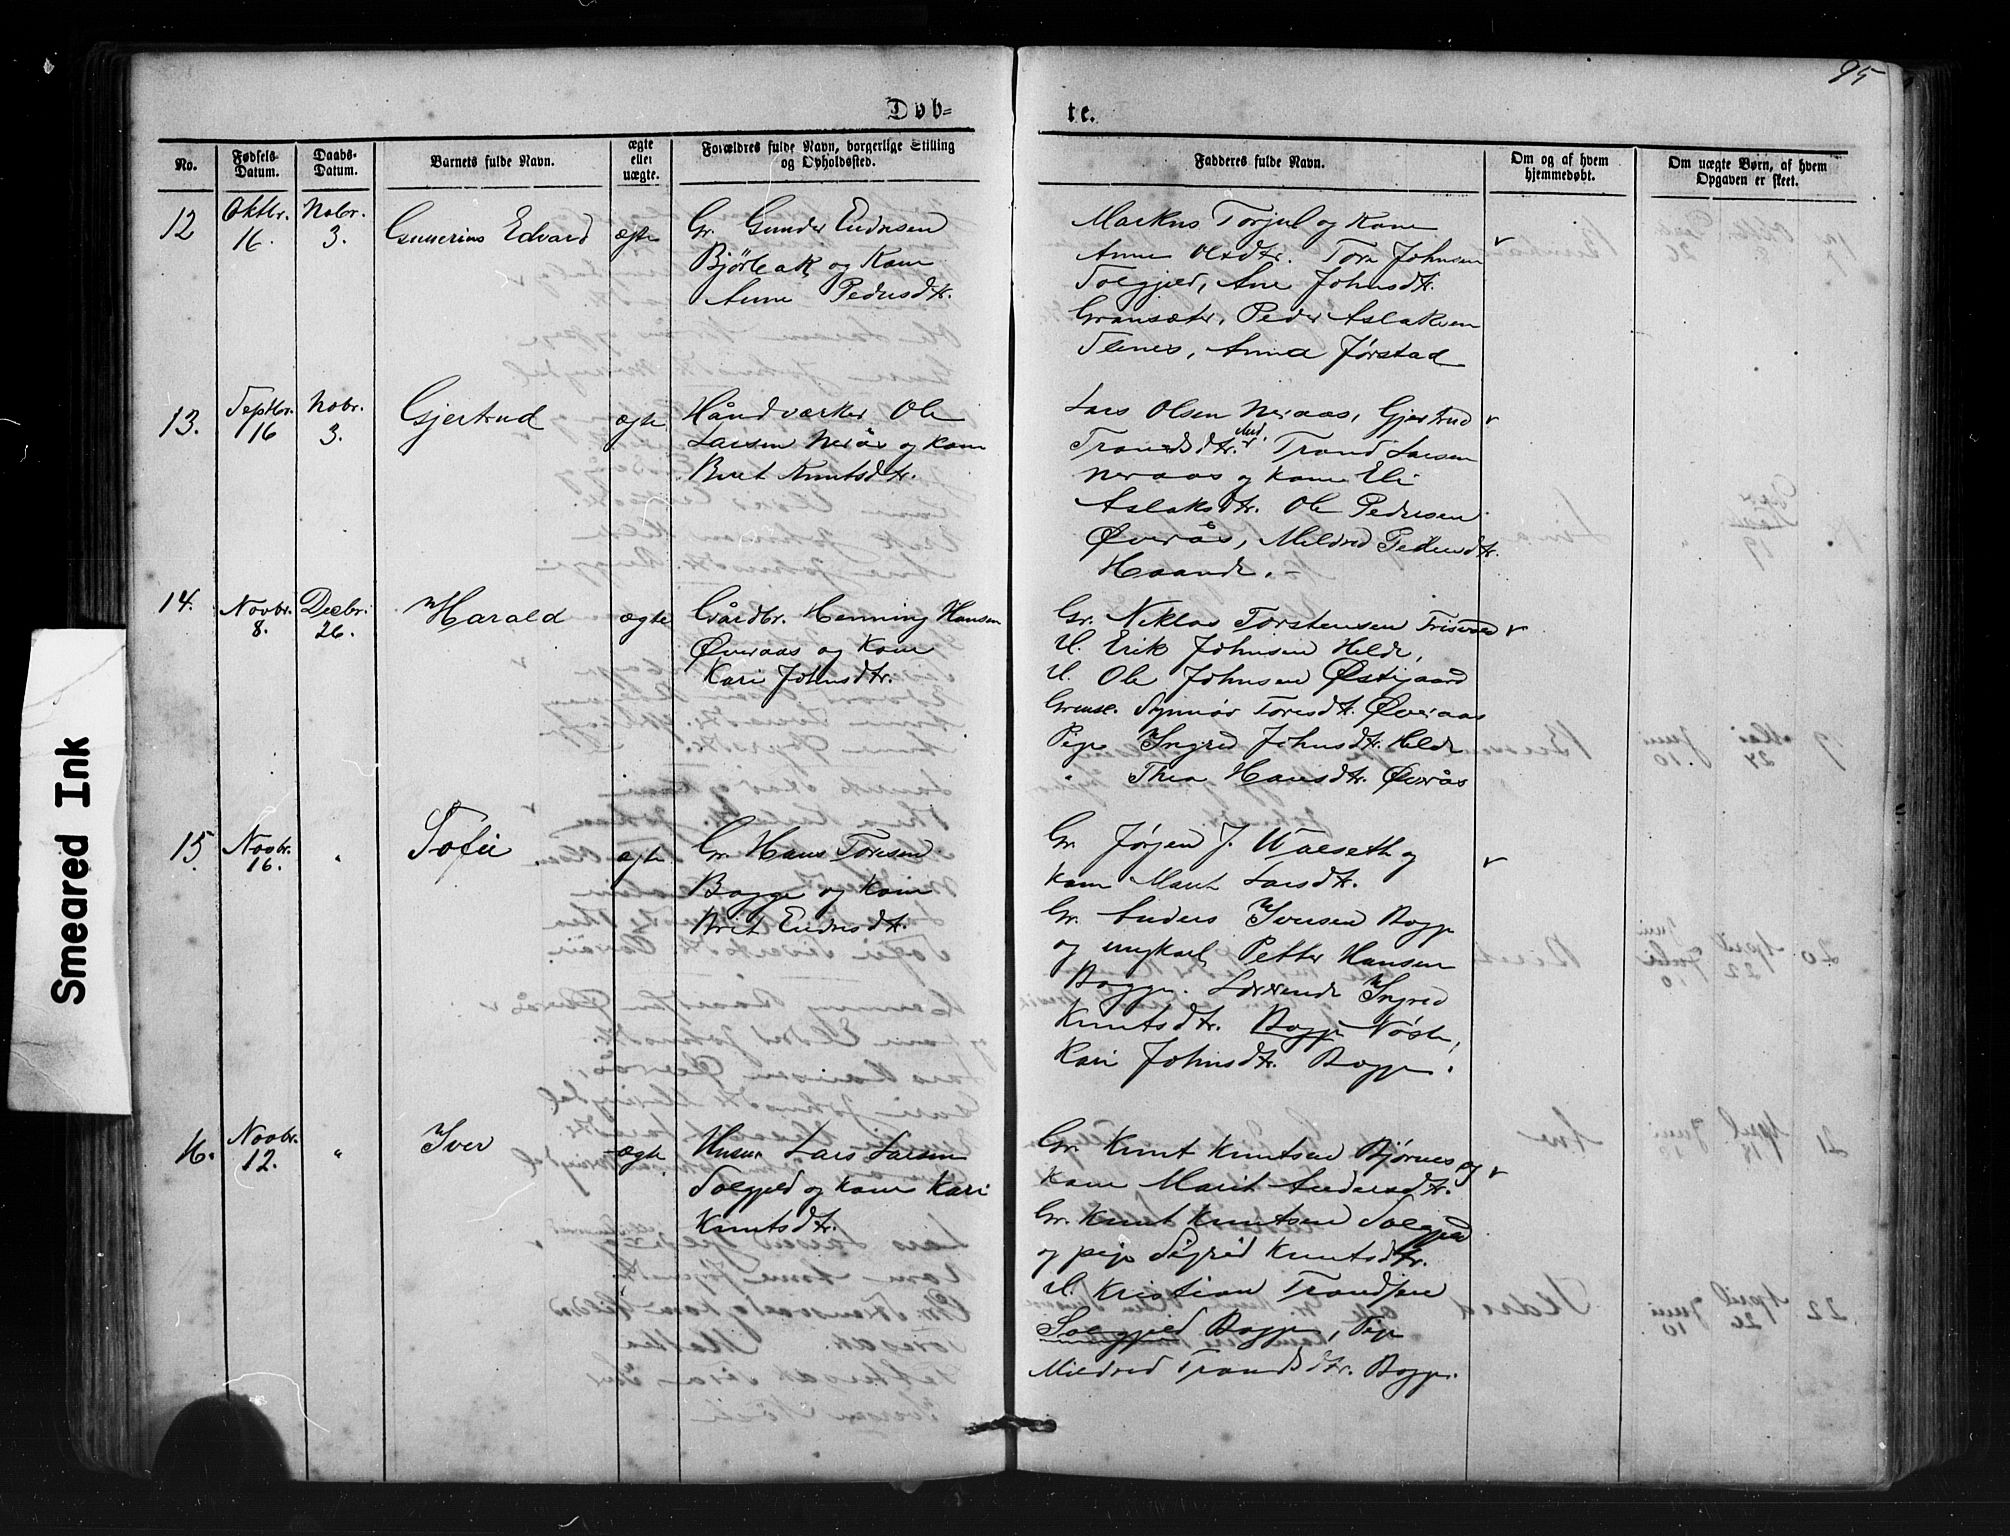 95
Døb=
te.
No.
Fødsels-
Datum.
Daabs-
Datum.
Barnets fulde Navn.
ægte
eller
uægte.
Forældres fulde Navn, borgerlige Stilling
og Opholdssted.
Fadderes fulde Navn.
Om og af hvem
hjemmedøbt.
Om uægte Børn, af hvem
Opgaven er skeet.
12
Oktbr.
16.
Nobr.
3.
Gunerius Edvard
ægte
Gr. Gunder Endresen
Bjørleak og Kone
Anne Pedersdtr.
Markus Torjul og Kone
Anne Olsdtr. Tore Johnsen
Solgjeld, Ane Johnsdtr.
Gransæter, Peder Aslaksen
Stenes, Anna Jørstad
13.
Septbr.
16
Nobr.
3.
Gjertrud
ægte
Håndværker Ole
Larsen Nerås og Kone
Beret Knutsdtr.
Lars Olsen Neraas, Gjertrud
Trondsdtr. Trond Larsen
Neraas og Kone Eli
Aslaksdtr. Ole Pedersen
Øverås, Mildred Pedersdtr.
Haande. -
14.
Novbr.
8.
Decbr.
26.
Harald
ægte
Gårdbr. Henning Hansen
Øveraas og Kone
Kari Johnsdtr.
Gr. Niklas Torstensen Frisvoll
U. Erik Johnsen Helde,
U. Ole Johnsen Østigaard
Synnøv Toresdt. Øveraas
Pige Ingrid Johnsdtr. Helde
" Thea Hansdtr. Øverås
15
Novbr.
16.
"
Sofie
ægte
Gr. Hans Toresen
Bogge og Kone
Brit Endresdtr.
Gr. Jørgen J. Walseth og
Kone Marit Larsdtr.
Gr. Anders Iversen Bogge
og ungkarl Petter Hansen
Bogge. Lærerinde Ingrid
Knutsdtr. Bogge Nøste,
Kari Johnsdtr. Bogge.
16.
Novbr.
12.
"
Iver
ægte
Husm. Lars Larsen
Solgjeld og Kone Kari
Knutsdtr.
Gr. Knut Knutsen Bjørnes og
Kone Marit Andersdtr.
Gr. Knut Knutsen Solgjeld
og pige Sigrid Knutsdtr.
U. Kristian Trondsen
Solgjeld Bogge, Pige
Mildred Trondsdtr. Bogge.
Smeared Ink